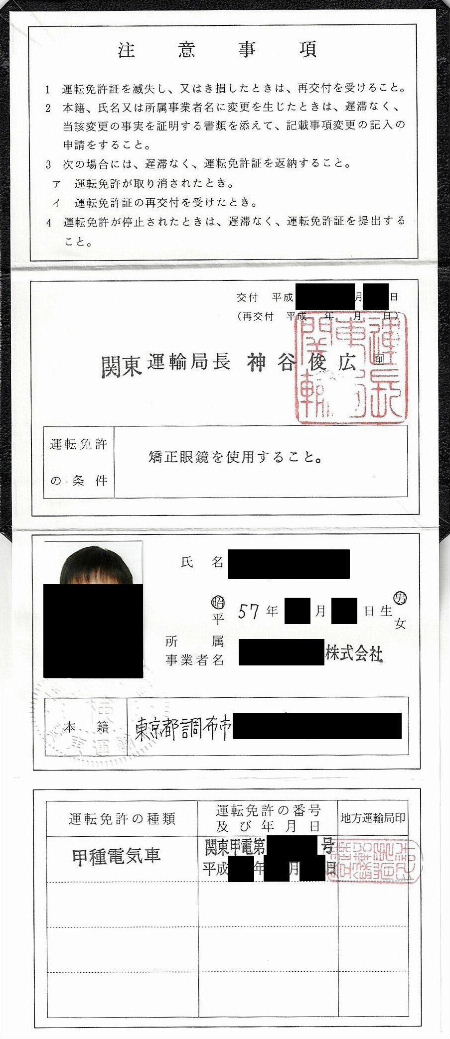 注意事項
1 運転免許証を滅失し、又はき損したときは、再交付を受けること。
2 本籍、氏名又は所属事業者名に変更を生じたときは、遅滞なく、
当該変更の事実を証明する書類を添えて、記載事項変更の記入の
申請をすること。
3 次の場合には、遅滞なく、運転免許証を返納すること。
ア 運転免許が取り消されたとき。
イ 運転免許証の再交付を受けたとき。
4 運転免許が停止されたときは、遅滞なく、運転免許証を提出する
こと。
交付 平成 月 日
(再交付 平成 年 月 日)
関東運輸局長 神谷俊広
運転免許
の条件
矯正眼鏡を使用すること。
氏名
昭
平 57年 月 日生 男
女
所属
事業者名 株式会社
本籍 東京都調布市
運転免許の種類 運転免許の番号
及び年月日 地方運輸局印
甲種電気車 関東甲電第 号
平成 年 月 日